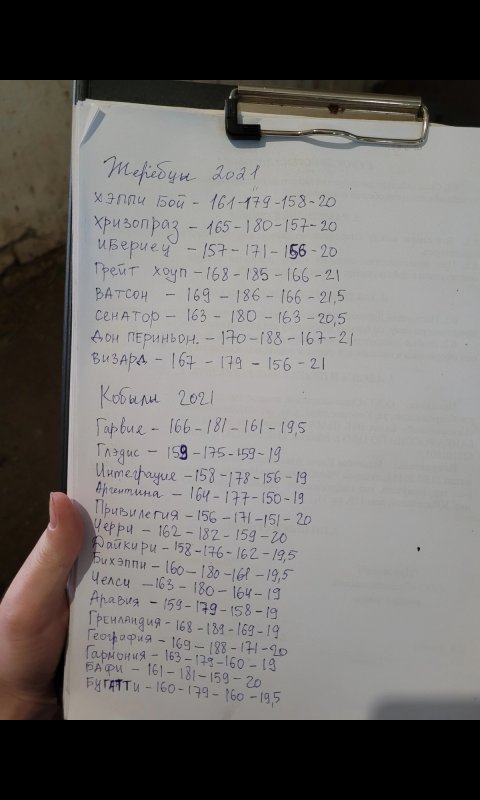 Жеребцы 2021
Хэппи Бой - 161-179-158-20
Хризопраз - 165-180-157-20
Иберией - 157-171-156-20
Грейт Хоуп - 168-185-166-21
Ватсон - 169-186-166-21,5
Сенатор - 163-180-163-20,5
Дон Периньон - 170-188-167-21
Визард - 167-179-156-21
Кобылы 2021
Гарвия - 166-181-161-19,5
Глэдис - 159-175-159-19
Интеграция - 158-178-156-19
Аргентина - 164-177-150-19
Привилегия - 156-171-151-20
Черри - 162-182-159-20
Дайкири - 158-176-162-19,5
Бихэппи - 160-180-161-19,5
Челси - 163-180-164-19
Аравия - 159-179-158-19
Гренландия - 168-189-169-19
География - 169-188-171-20
Гармония - 163-179-160-19
Бафи - 161-181-159-20
Бугатти - 160-179-160-19,5